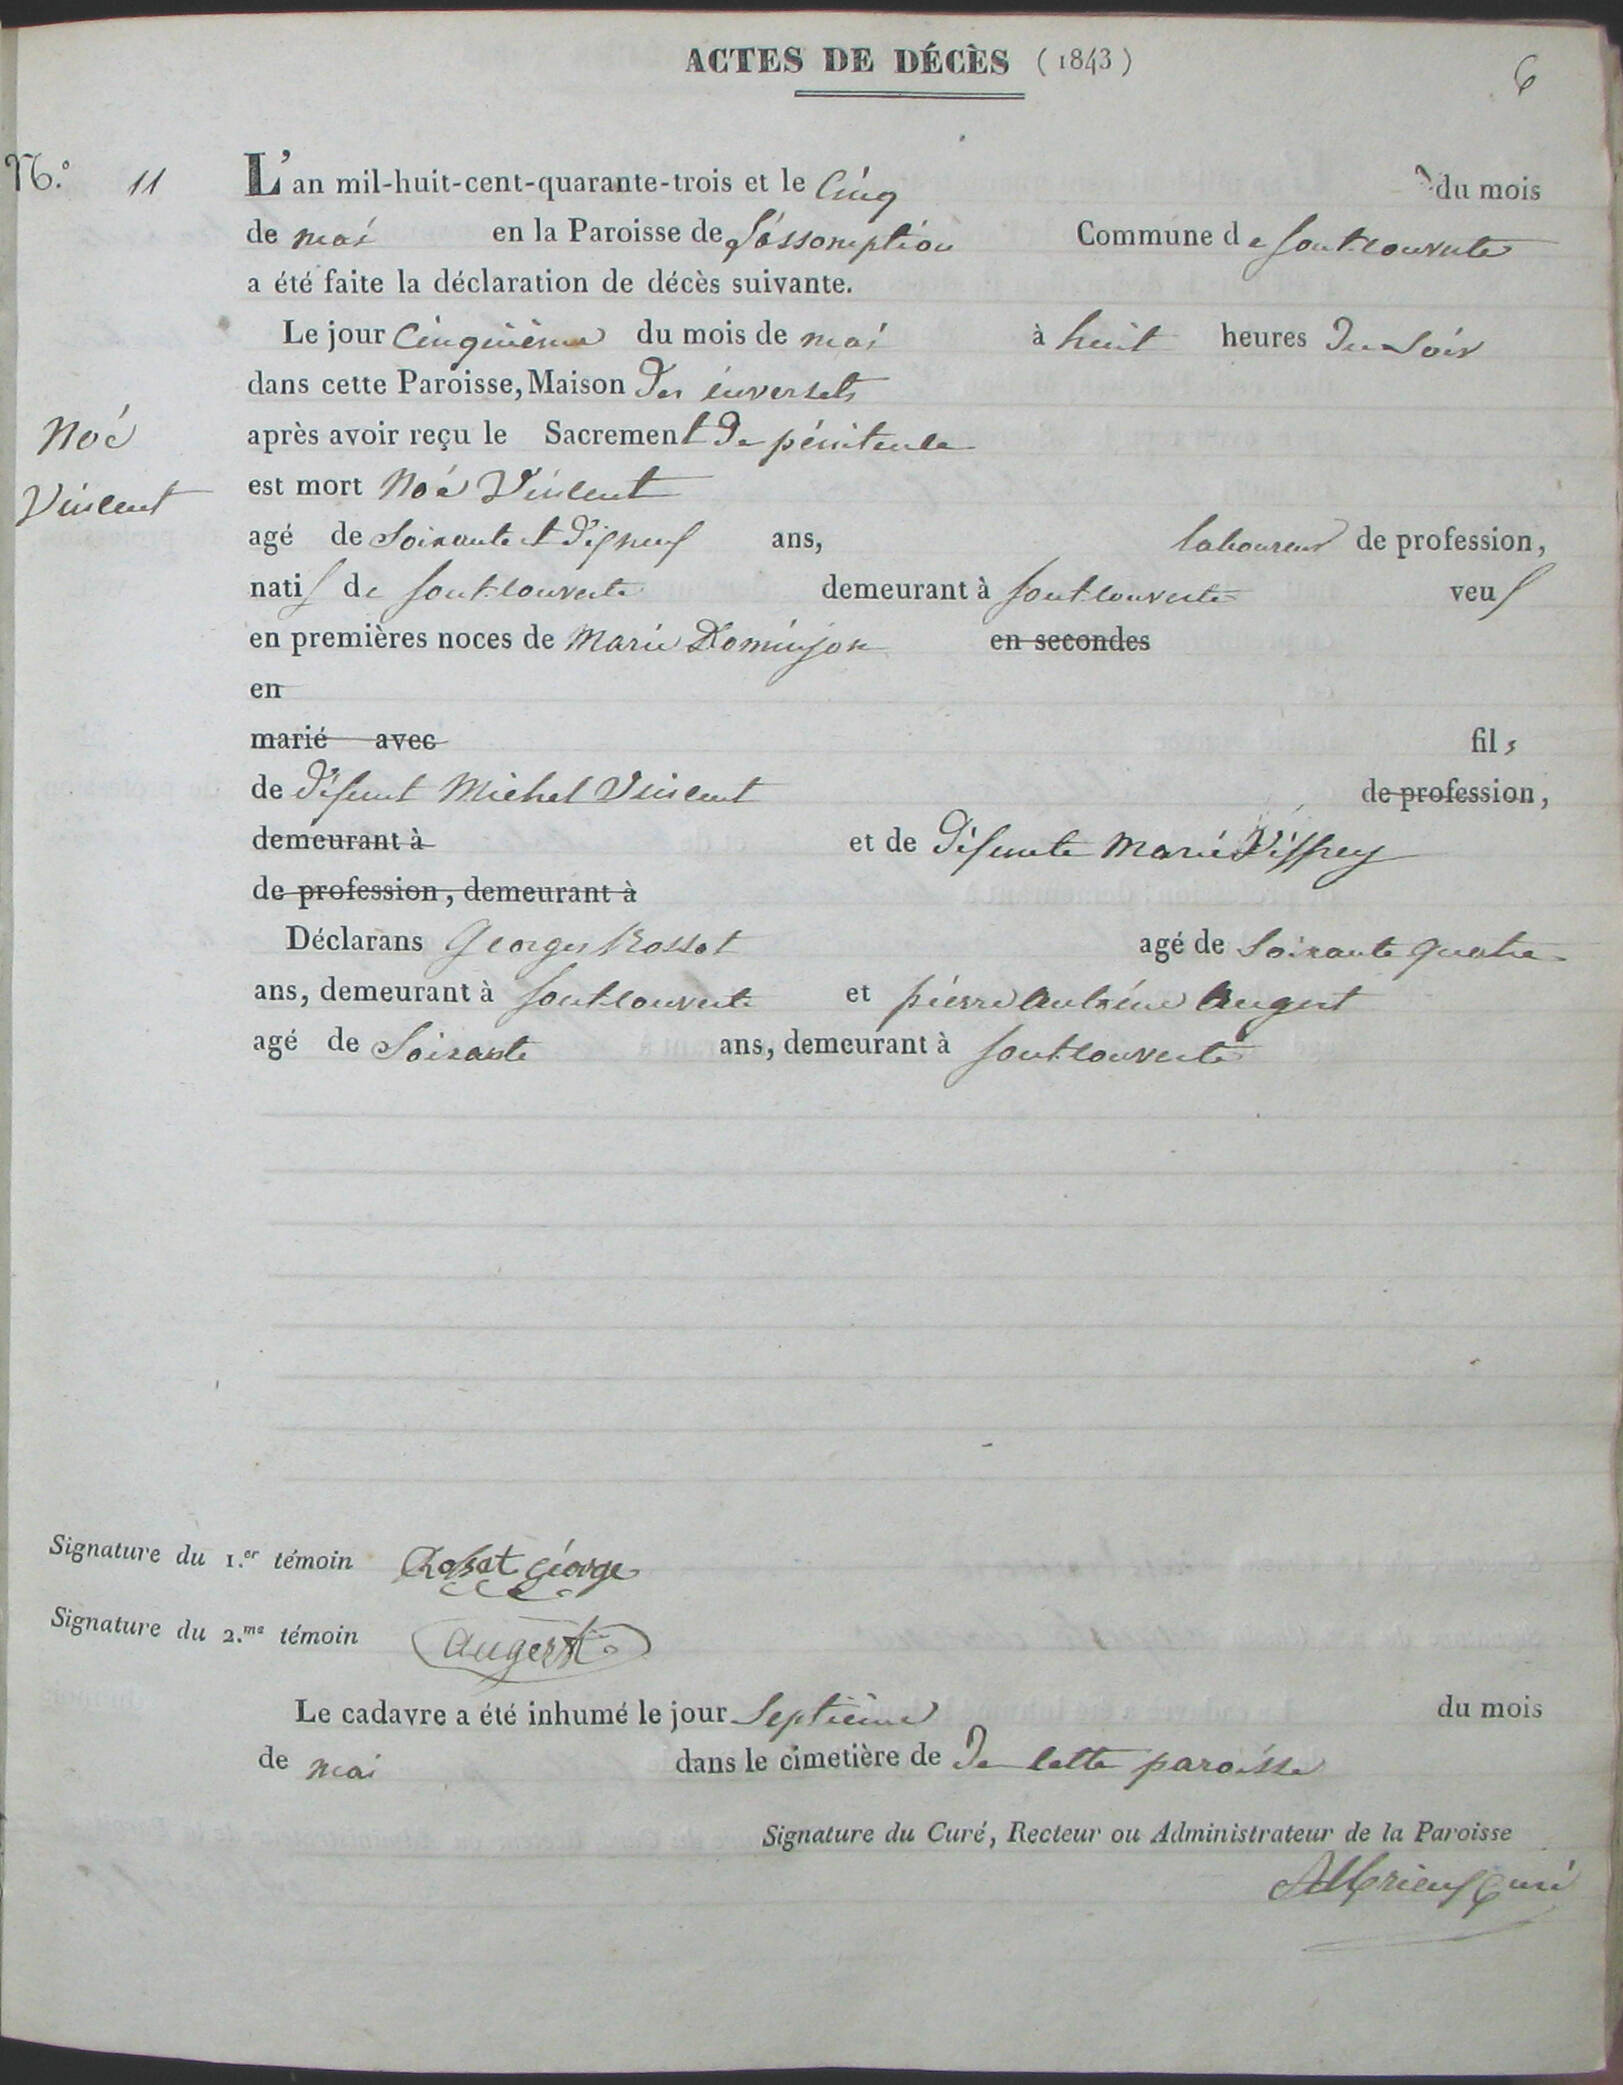 ACTES DE DÉCÈS (1843)
6
N.° 11 L'an mil-huit-cent-quarante-trois et le Cinq du mois
de mai en la Paroisse de L'assomption Commune de fontcouverte
a été faite la déclaration de décès suivante.
Le jour Cinquième du mois de mai à huit heures du soir
dans cette Paroisse, Maison des inversets
Noé après avoir reçu le Sacrement de pénitence
Vincent est mort Noé Vincent
agé de Soixante et dix neuf ans, laboureur de profession,
natif de fontcouverte demeurant à fontcouverte veuf
en premières noces de Marie Dominjon en secondes
en
marié avec fils
de défunt Michel Vincent de profession,
demeurant à et de défunte Marie Viffrey
de profession, demeurant à
Déclarans Georges Rossat agé de Soixante quatre
ans, demeurant à fontcouverte et pierre antoine Augert
agé de Soixante ans, demeurant à fontcouverte
Signature du 1.er témoin Rossat George
Signature du 2.me témoin augert
Le cadavre a été inhumé le jour Septième du mois
de mai dans le cimetière de de cette paroisse
Signature du Curé, Recteur ou Administrateur de la Paroisse
Curé